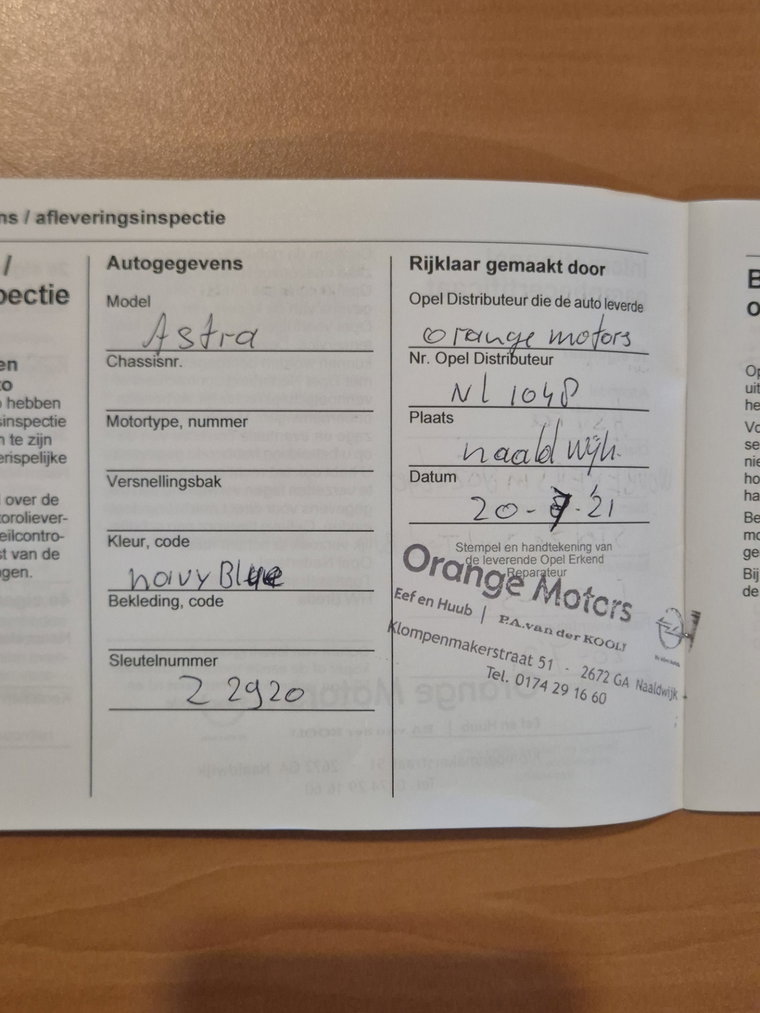 ns / afleveringsinspectie
/
pectie
en
to
hebben
sinspectie
n te zijn
erispelijke
over de
toroliever-
eilcontro-
st van de
ngen.
Autogegevens
Model
Astra
Chassisnr.
Motortype, nummer
Versnellingsbak
Kleur, code
navy Blue
Bekleding, code
Sleutelnummer
Z 2920
Rijklaar gemaakt door
Opel Distributeur die de auto leverde
Orange motors
Nr. Opel Distributeur
NL 1048
Plaats
naaldwijk
Datum
20- -21
Stempel en handtekening van
de leverende Opel Erkend
Reparateur
Orange Motors
Eef en Huub | P.A. van der KOOIJ
Klompenmakerstraat 51 - 2672 GA Naaldwijk
Tel. 0174 29 16 60
B
o
Op
uit
he
Vo
se
nie
ho
ha
Be
mo
ge
Bij
de